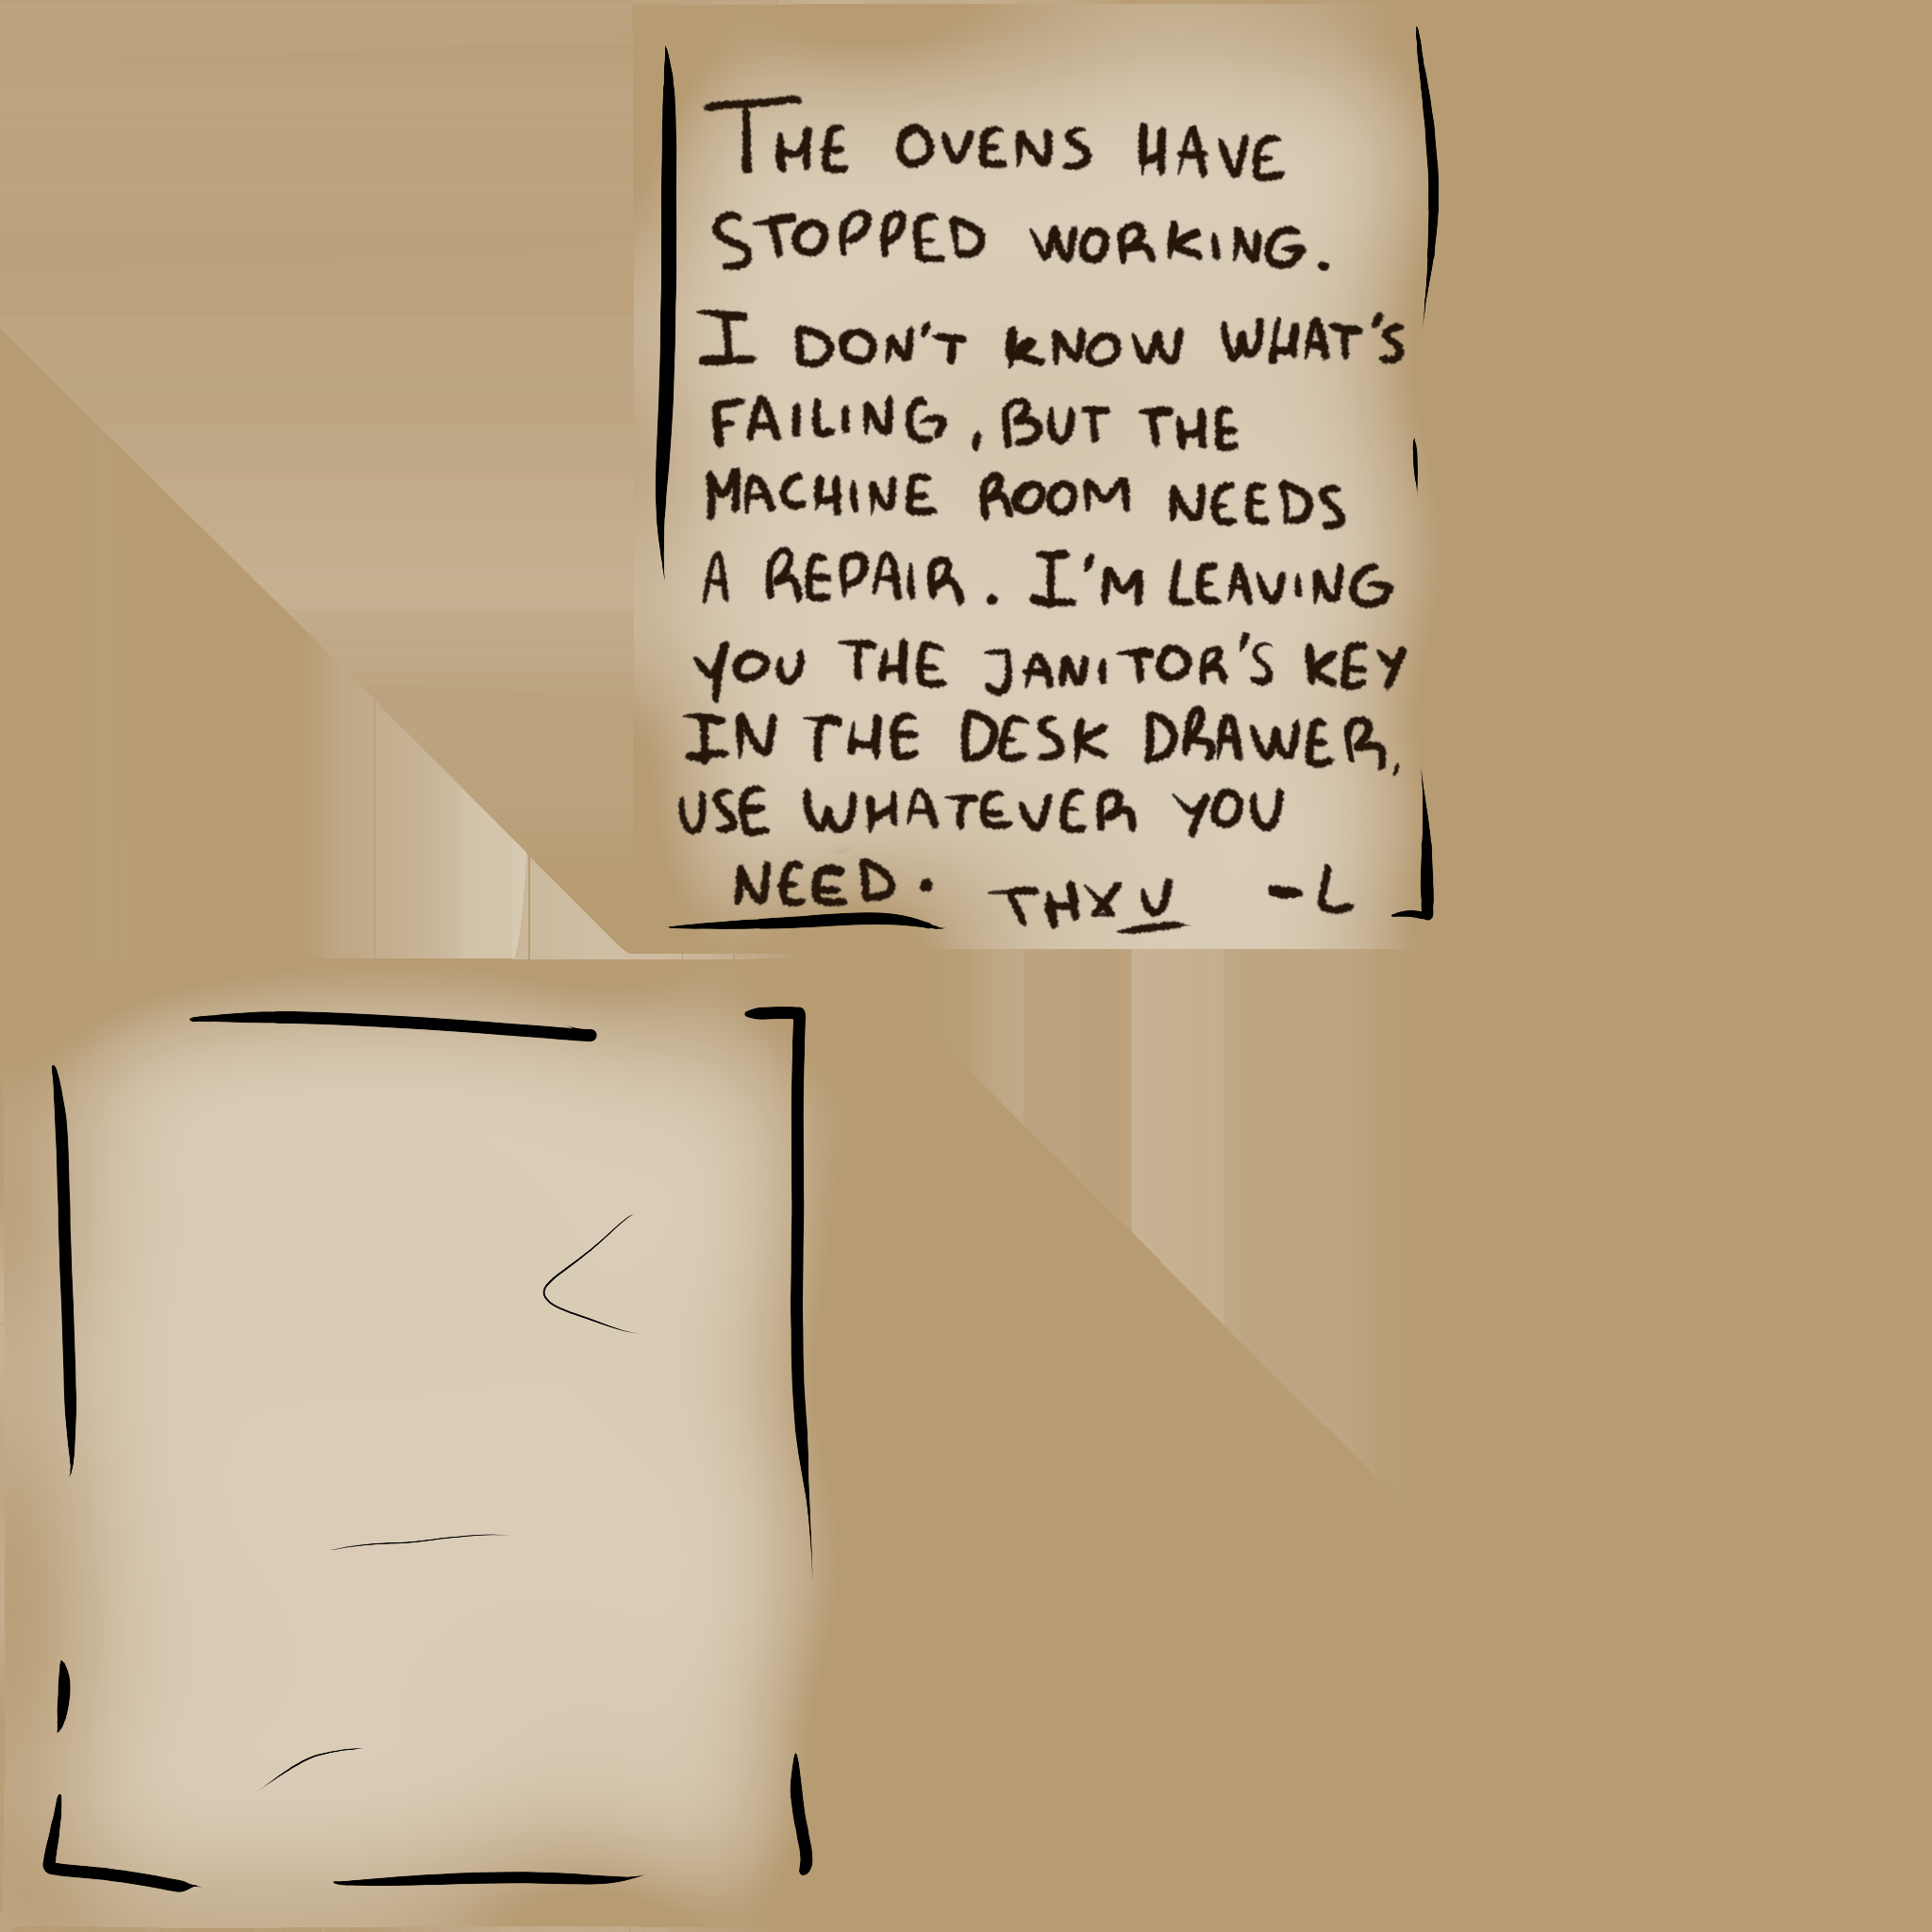 THE OVENS HAVE
STOPPED WORKING.
I DON'T KNOW WHAT'S
FAILING, BUT THE
MACHINE ROOM NEEDS
A REPAIR. I'M LEAVING
YOU THE JANITOR'S KEY
IN THE DESK DRAWER,
USE WHATEVER YOU
NEED. THX U -L